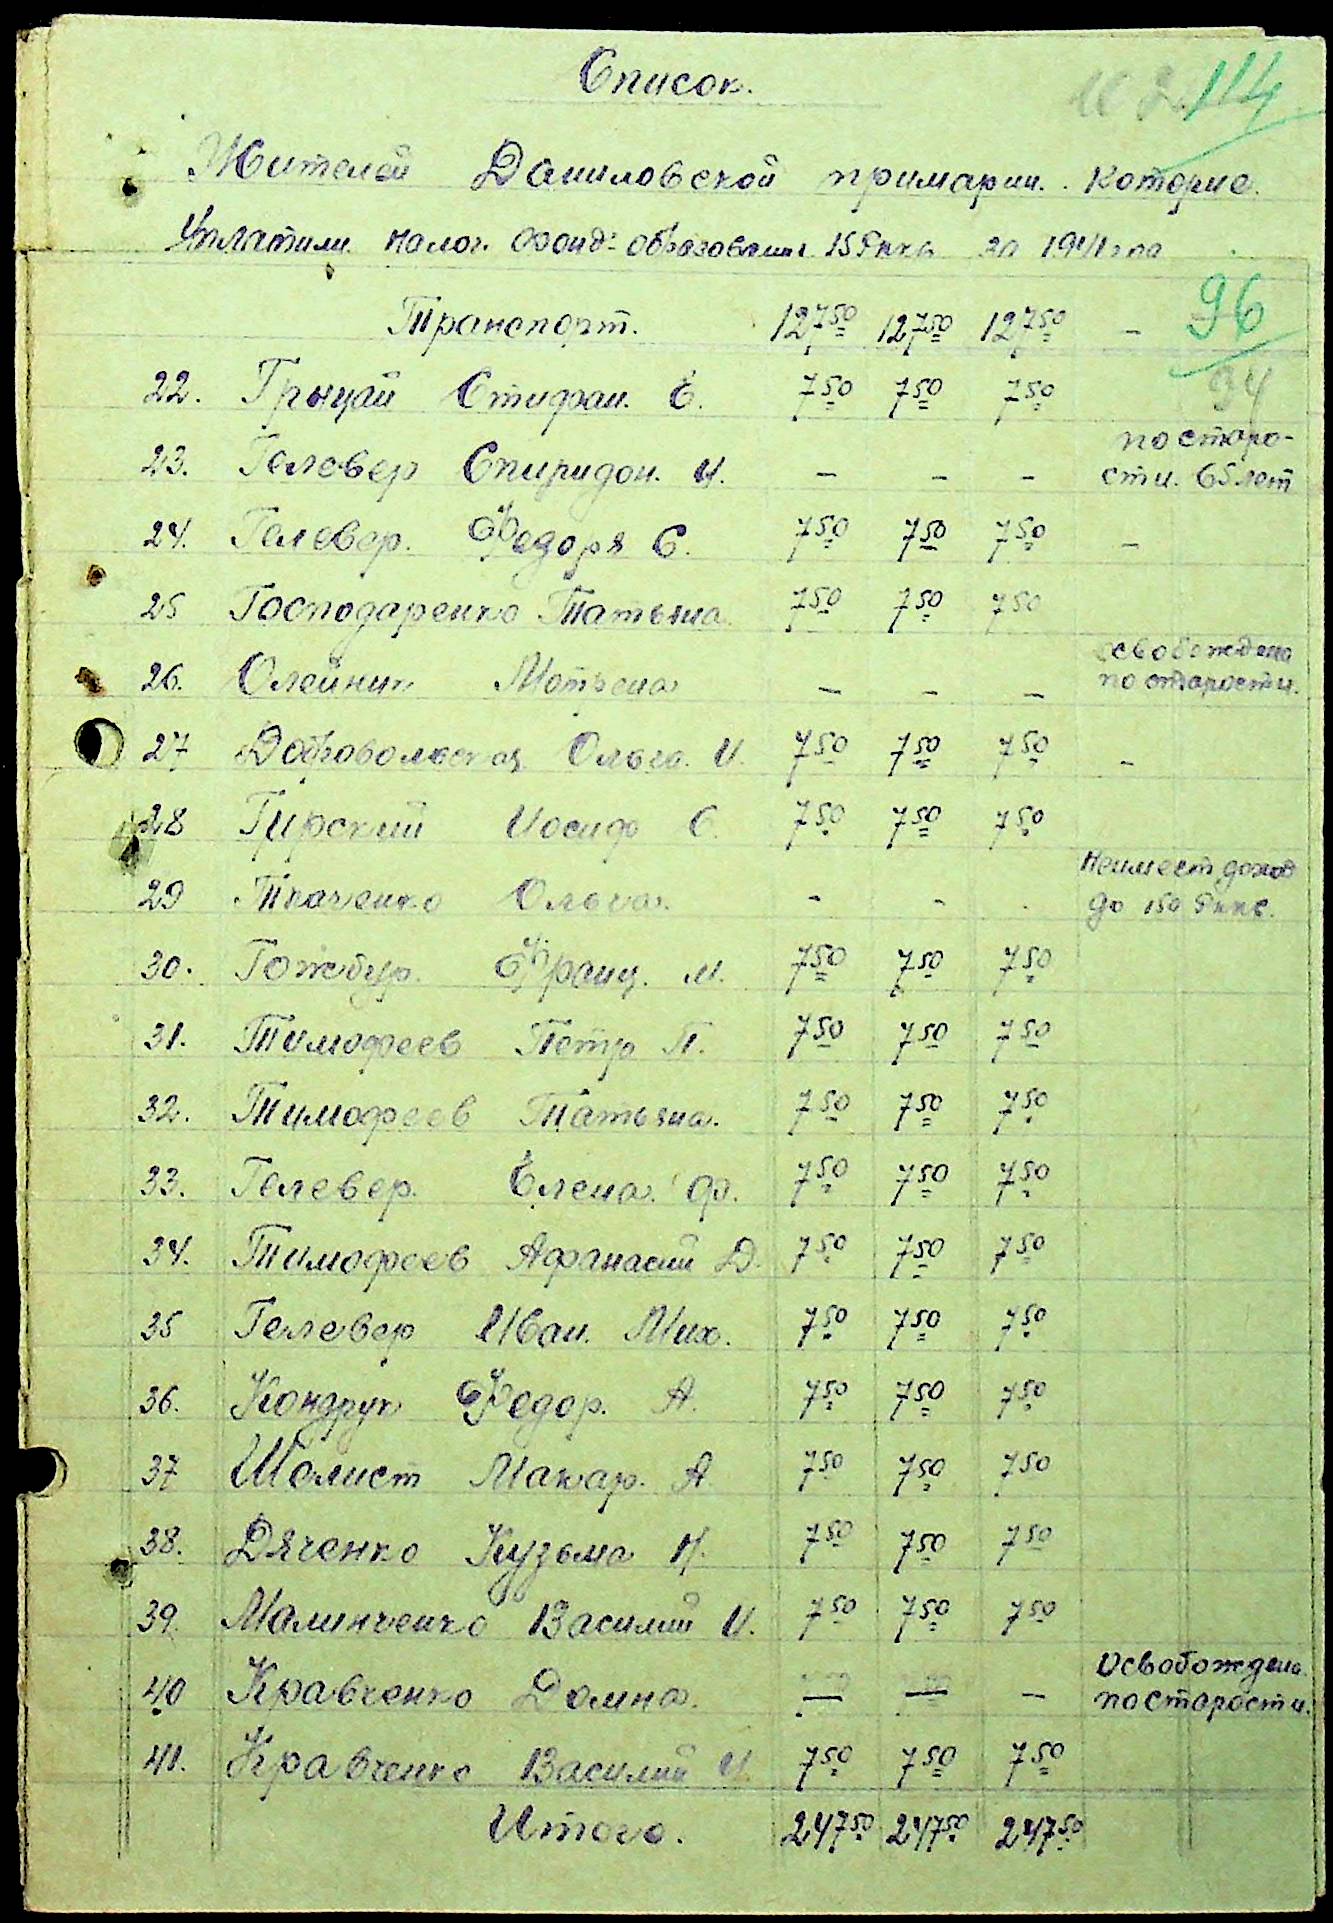 Список.
114
Жителей Даниловской примарии. которые.
Уплатили налог. Фонд образования 15 Рккв за 1941 год
96
Транспорт. 127 50 127 50 127 50 –
94
22. Грыцай Стифан. Е. 7 50 7 50 7 50
по старо-
23. Гелевер Спиридон. И. – – – сти. 65 лет
24. Гелевер. Федоря С. 7 50 7 50 7 50 –
25 Господаренко Татьяна. 7 50 7 50 7 50
освобождена
26. Олейник Мотрена – – – по старости.
27 Добровольская Ольга. И. 7 50 7 50 7 50 –
28 Гурский Иосиф С. 7 50 7 50 7 50
Неимеет доход
29 Ткаченко Ольга. – – . до 150 Ркке.
30. Гожбур. Франц. М. 7 50 7 50 7 50
31. Тимофеев Петр П. 7 50 7 50 7 50
32. Тимофеев Татьяна. 7 50 7 50 7 50
33. Гелевер. Елена. Ф. 7 50 7 50 7 50
34. Тимофеев Афанасий Д. 7 50 7 50 7 50
35 Гелевер Иван. Мих. 7 50 7 50 7 50
36. Кондрук Федор. А. 7 50 7 50 7 50
37 Шолист Макар. А 7 50 7 50 7 50
38. Дяченко Кузьма П. 7 50 7 50 7 50
39. Малинченко Василий И. 7 50 7 50 7 50
Освобождена.
40 Кравченко Домна. – – – по старости.
41. Кравченко Василий И. 7 50 7 50 7 50
Итого. 247 50 247 50 247 50